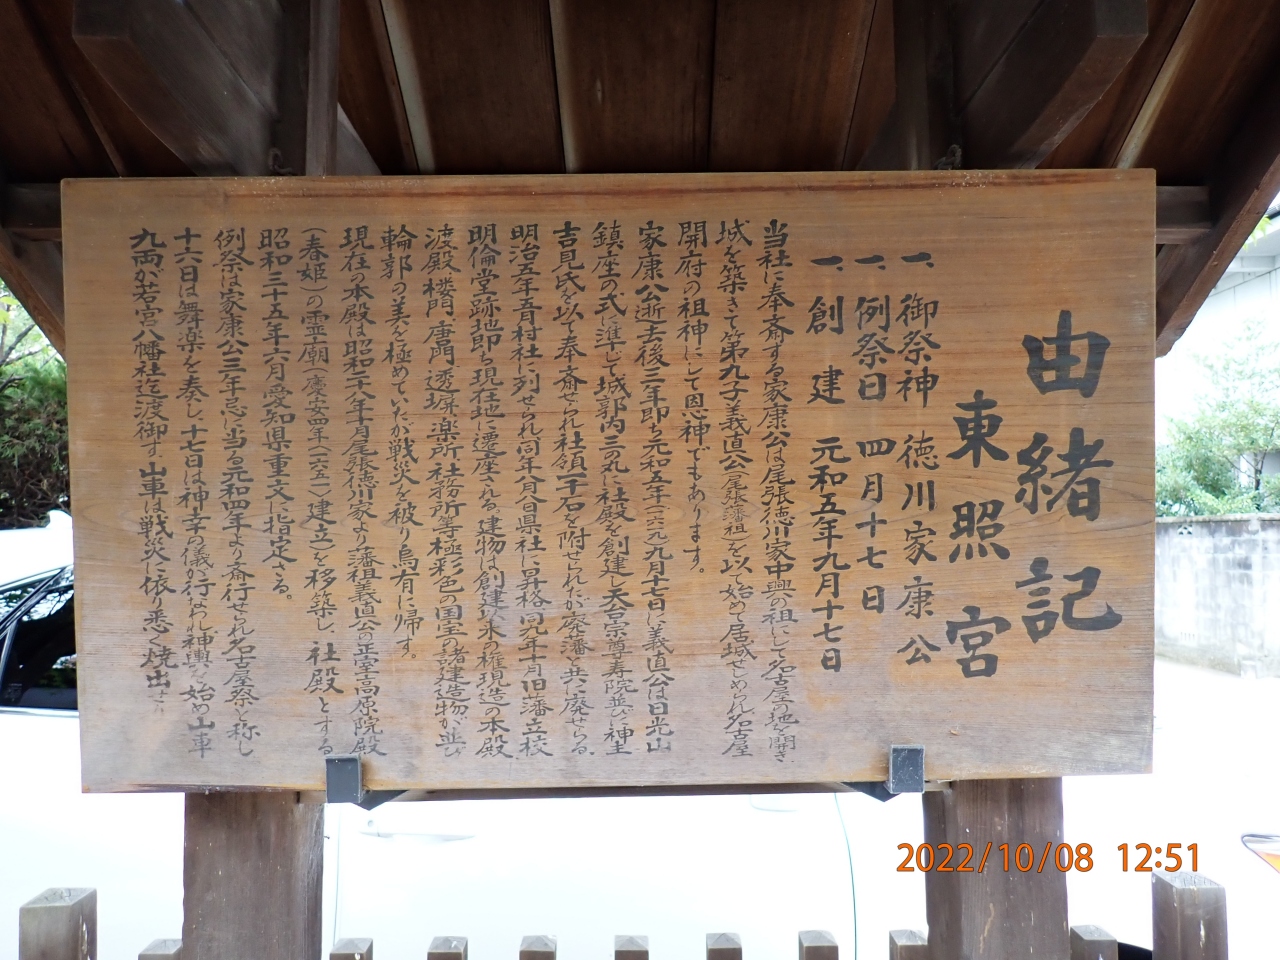 由緒記
東照宮
一、御祭神 徳川家康公
一、例祭日 四月十七日
一、創建 元和五年九月十七日
当社に奉斎する家康公は尾張徳川家中興の祖にして名古屋の地を開き
城を築きて第九子義直公(尾張藩祖)を以て始めて居城せしめられ名古屋
開府の祖神にして恩神でもあります。
家康公逝去後三年即ち元和五年(一六一九)九月十七日に義直公は日光山
鎮座の式に準じて城郭内三の丸に社殿を創建し天台宗尊寿院並びに神主
吉見氏を以て奉斎せられ社領一千石を附せられたが廃藩と共に廃せらる
明治五年五月村社に列せられ同年八月八日県社に昇格同九年十月旧藩立校
明倫堂跡地即ち現在地に遷座される。建物は創建以来の権現造の本殿
渡殿楼門、唐門、透塀、楽所、社務所等極彩色の国宝の諸建造物が並び
輪郭の美を極めていたが戦災を被り烏有に帰す。
現在の本殿は昭和二十八年十月尾張徳川家より藩祖義直公の正室高原院殿
(春姫)の霊廟(慶安四年(一六五一)建立)を移築し、社殿とする
昭和三十五年六月愛知県重文に指定さる。
例祭は家康公三年忌に当る元和四年より斎行せられ名古屋祭と称し
十六日は舞楽を奏し、十七日は神幸の儀が行なわれ神輿を始め山車
九両が若宮八幡社迄渡御す、山車は戦災に依り悉く焼出さり
2022/10/08 12:51